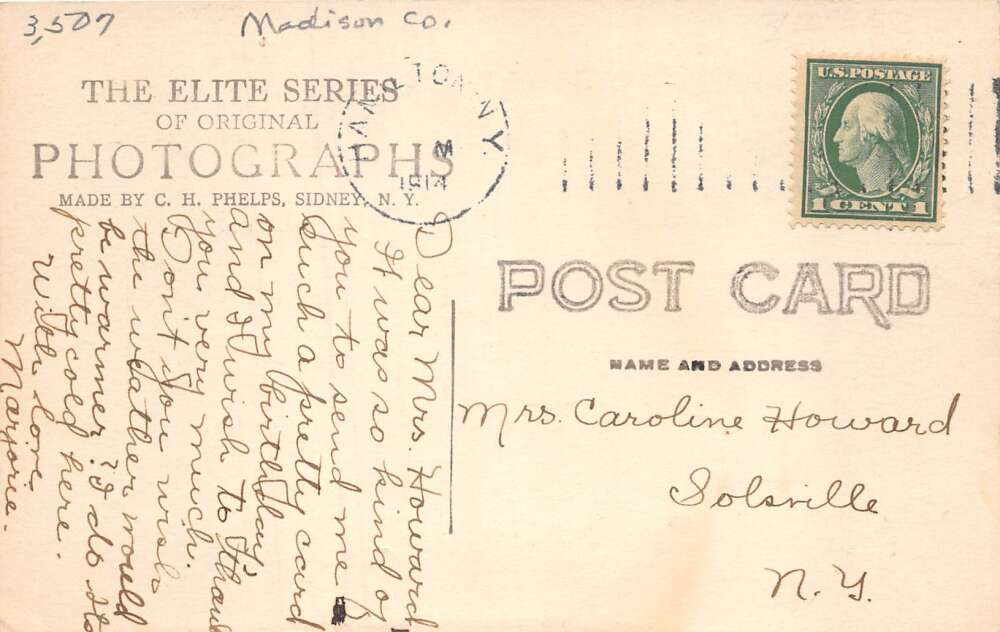 3,507
Madison Co.
THE ELITE SERIES
OF ORIGINAL
PHOTOGRAPHS
MADE BY C. H. PHELPS, SIDNEY, N. Y.
HAMILTON N.Y.
1914
U.S. POSTAGE
1 CENT 1
POST CARD
NAME AND ADDRESS
Mrs. Caroline Howard
Solsville
N.Y.
Dear Mrs. Howard
It was so kind of
you to send me
such a pretty card
on my birthday
and I wish to thank
you very much.
Don't you wish
the weather would
be warmer? I do its
pretty cold here.
With love
Marjorie.